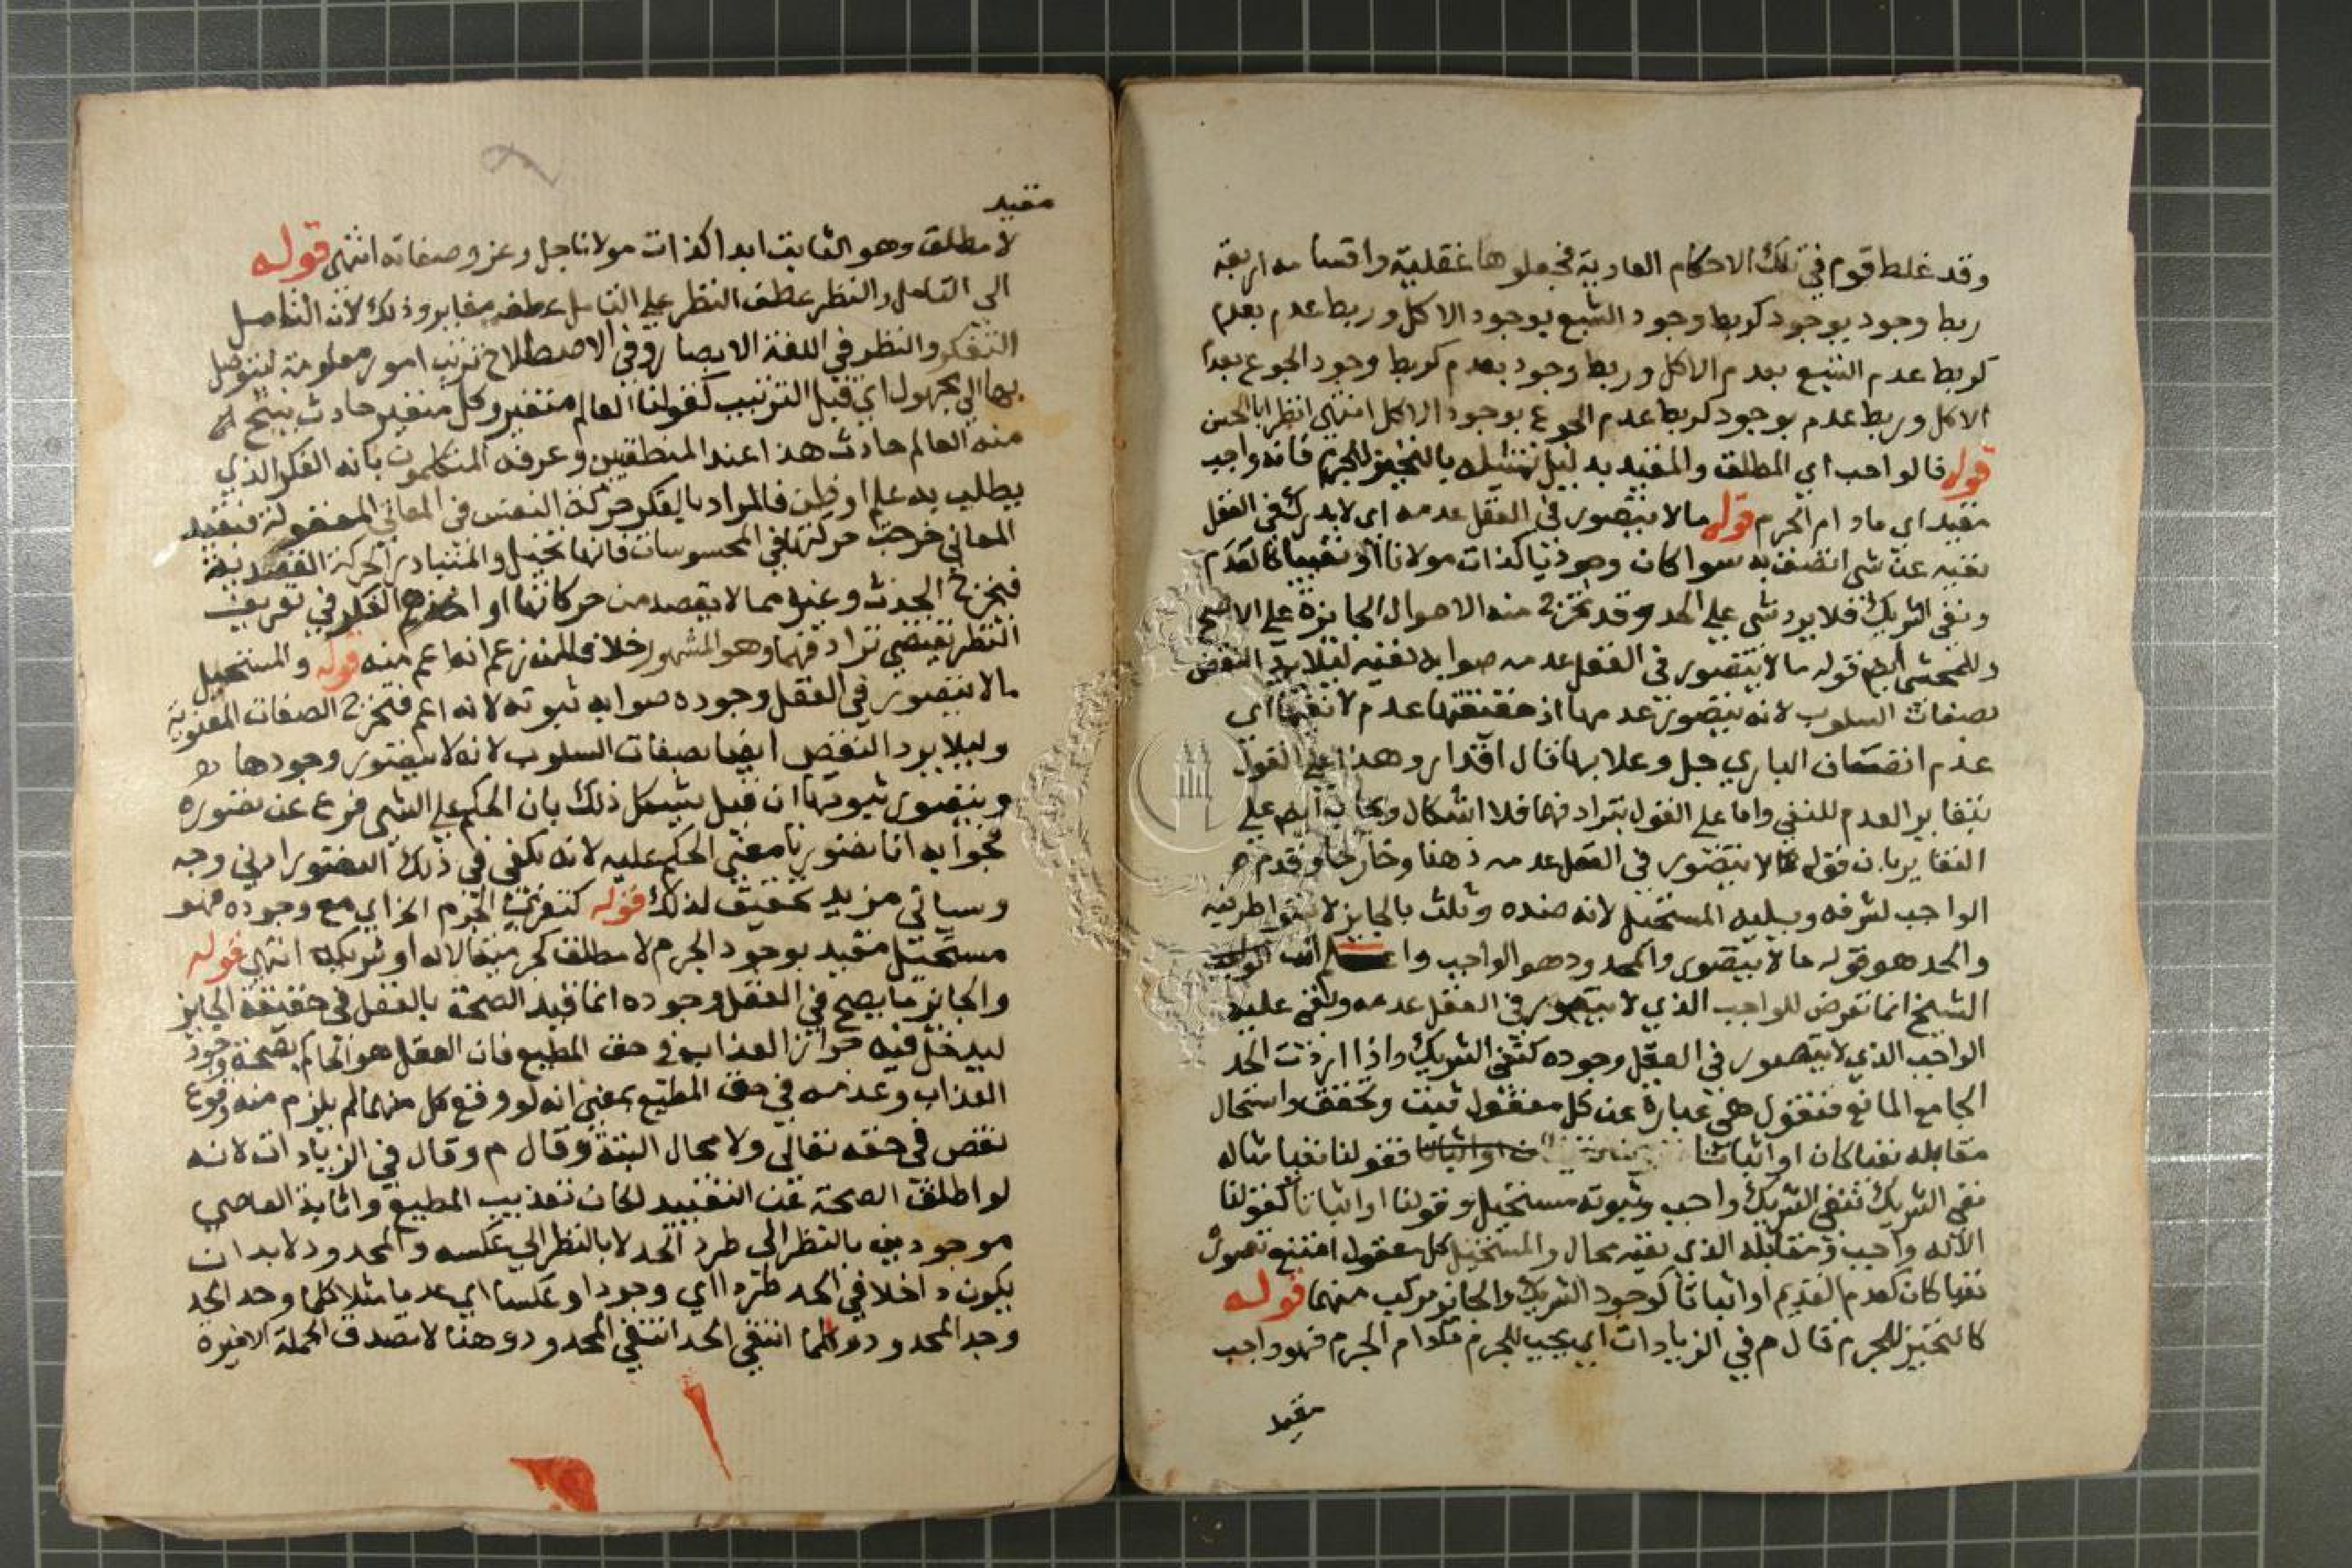 وقد غلط قوم في تلك الاحكام العادية فجعلوها عقلية واقسامه اربعة
ربط وجود بوجود كربط وجود الشبع بوجود الاكل وربط عدم بعدم
كربط عدم الشبع بعدم الاكل وربط وجود بعدم كربط وجود الجوع بعدم
الاكل وربط عدم بوجود كربط عدم الجوع بوجود الاكل انتهى انظر ابا الحسن
قوله فالواجب اي المطلق والمقيد بدليل تمثيله بالتحيز للجرم فانه واجب
مقيد اي مادام الجرم قوله ما لا يتصور في العقل عدمه اي لا يدرك في العقل
نفيه عن شي اتصف به سوا كان وجوديا كذات مولانا او نفييا كالقدم
ونفي الشريك فلا يرد شي على الحد وقد تخرج منه الاحوال الجايزة على الاصح
وللمحشي ايضا قوله ما لا يتصور في العقل عدمه صوابه نفيه ليلا يرد النقض
بصفات السلوب لانه يتصور عدمها اذ حقيقتها عدم لا نفيها اي
عدم اتصاف الباري جل وعلا بها قال اقدار وهذا على القول
بتغاير العدم للنفي واما على القول بترادفهما فلا اشكال ويجاب ايضا على
التغاير بان قوله ما لا يتصور في العقل عدمه ذهنا وخارجا وقدم
الواجب لشرفه ويليه المستحيل لانه ضده وثلث بالجايز لا
والحد هو قوله ما لا يتصور والمحدود هو الواجب واعلم ان
الشيخ انما تعرض للواجب الذي لا يتصور في العقل عدمه وبقي عليه
الواجب الذي لا يتصور في العقل وجوده كنفي الشريك واذا اردت الحد
الجامع المانع فتقول هي عبارة عن كل معقول ثبت وتحقق واستحال
مقابله نفيا كان او اثباتا فقولنا نفيا مثاله
نفي الشريك فنفي الشريك واجب وثبوته مستحيل وقولنا او اثباتا كقولنا
الاله واجب ومقابله الذي نفيه محال والمستحيل كل معقول امتنع تصوره
نفيا كان كعدم القديم او اثباتا كوجود الشريك والجايز مركب منهما قوله
كالتحيز للجرم قال م في الزيادات اي يجب للجرم مادام الجرم فهو واجب
مقيد
مقيد
لا مطلق وهو الثابت ابدا كذات مولانا جل وعز وصفاته انتهى قوله
الى التامل والنظر عطف النظر على التامل عطف مغاير وذلك لان التامل
التفكر والنظر في اللغة الابصار وفي الاصطلاح ترتيب امور معلومة ليتوصل
بها الى مجهول اي قبل الترتيب كقولنا العالم متغير وكل متغير حادث ينتج
منه العالم حادث هذا عند المنطقيين وعرفه المتكلمون بانه الفكر الذي
يطلب به علم او ظن فالمراد بالفكر حركة النفس في المعاني المعقولة فبقيد
المعاني خرجت حركتها في المحسوسات فانها تخيل والمتبادر الحركة القصدية
فيخرج الحدث وغيره مما لا يقصد من حركاتها او الفكر في تعريف
النظر يقتضي ترادفهما وهو المشهور خلافا لمن زعم انه اعم منه قوله والمستحيل
ما لا يتصور في العقل وجوده صوابه ثبوته لانه اعم فتخرج الصفات المعنوية
وليلا يرد النقض ايضا بصفات السلوب لانه لا يتصور وجودها
ويتصور ثبوتها ان قيل يشكل ذلك بان الحكم على الشي فرع عن تصوره
فجوابه انا تصورنا معنى الحكم عليه لانه يكفي في ذلك التصور ادنى وجه
وسياتي مزيد تحقيق لذلك قوله كتعري الجرم الخ اي مع وجوده فهو
مستحيل مقيد بوجود الجرم لا مطلق كجرمية الاله او شريكه انتهى قوله
والجايز ما يصح في العقل وجوده انما قيد الصحة بالعقل في حقيقة الجايز
ليدخل فيه جواز العذاب في حق المطيع فان العقل هو الحاكم بصحة وجود
العذاب وعدمه في حق المطيع بمعنى انه لو وقع كل منهما لم يلزم منه وقوع
نقص في حقه تعالى ولا محال البتة وقال م وقال في الزيادات لانه
لو اطلق الصحة عن التقييد لكان تعذيب المطيع واثابة العاصي
موجودين بالنظر الى طرد الحد لا بالنظر الى عكسه والمحدود لابد ان
يكون داخلا في الحد طردا اي وجودا وعكسا اي عدما مثلا كلما وجد الحد
وجد المحدود وكلما انتفي الحد انتفي المحدود وهنا لا تصدق الجملة الاخيرة